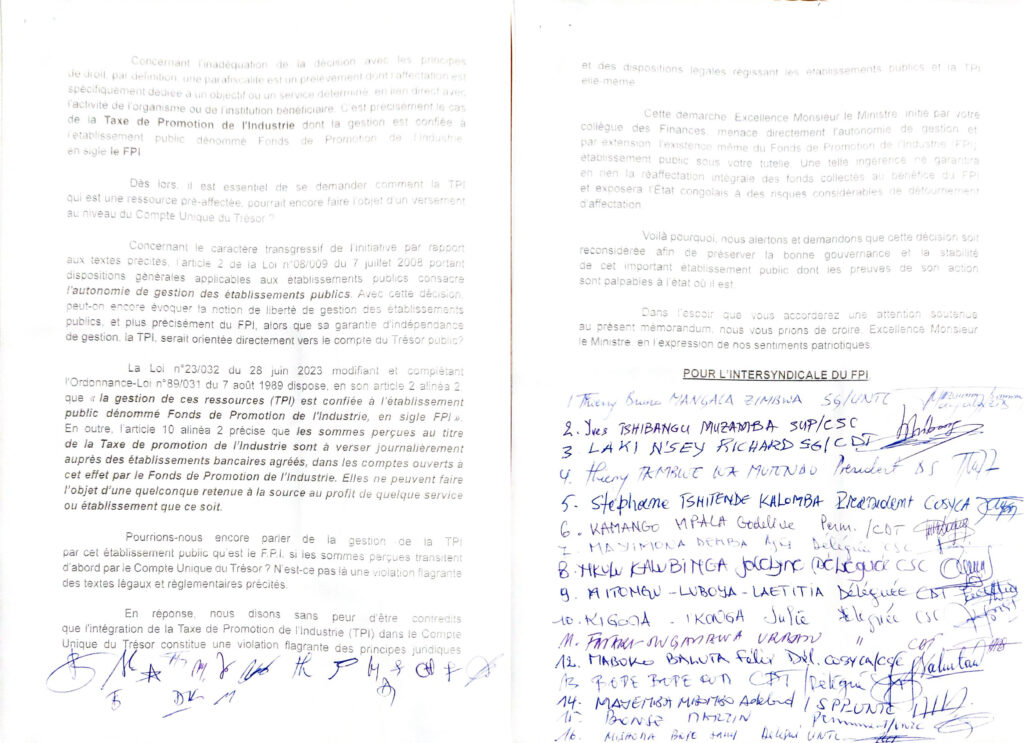 Concernant l'inadéquation de la décision avec les principes
de droit, par définition, une parafiscalité est un prélèvement dont l'affectation est
spécifiquement dédiée à un objectif ou un service déterminé, en lien direct avec
l'activité de l'organisme ou de l'institution bénéficiaire. C'est précisément le cas
de la Taxe de Promotion de l'Industrie dont la gestion est confiée à
l'établissement public dénommé Fonds de Promotion de l'Industrie
en sigle le FPI
Dès lors, il est essentiel de se demander comment la TPI
qui est une ressource pré-affectée, pourrait encore faire l'objet d'un versement
au niveau du Compte Unique du Trésor ?
Concernant le caractère transgressif de l'initiative par rapport
aux textes précités, l'article 2 de la Loi n°08/009 du 7 juillet 2008 portant
dispositions générales applicables aux établissements publics consacre
l'autonomie de gestion des établissements publics. Avec cette décision,
peut-on encore évoquer la notion de liberté de gestion des établissements
publics, et plus précisément du FPI, alors que sa garantie d'indépendance
de gestion, la TPI, serait orientée directement vers le compte du Trésor public?
La Loi n°23/032 du 28 juin 2023 modifiant et complétant
l'Ordonnance-Loi n°89/031 du 7 août 1989 dispose, en son article 2 alinéa 2,
que « la gestion de ces ressources (TPI) est confiée à l'établissement
public dénommé Fonds de Promotion de l'Industrie, en sigle FPI ».
En outre, l'article 10 alinéa 2 précise que les sommes perçues au titre
de la Taxe de Promotion de l'Industrie sont à verser journalièrement
auprès des établissements bancaires agréés, dans les comptes ouverts à
cet effet par le Fonds de Promotion de l'Industrie. Elles ne peuvent faire
l'objet d'une quelconque retenue à la source au profit de quelque service
ou établissement que ce soit.
Pourrions-nous encore parler de la gestion de la TPI
par cet établissement public qu'est le F.P.I. si les sommes perçues transitent
d'abord par le Compte Unique du Trésor ? N'est-ce pas là une violation flagrante
des textes légaux et réglementaires précités.
En réponse, nous disons sans peur d'être contredits
que l'intégration de la Taxe de Promotion de l'Industrie (TPI) dans le Compte
Unique du Trésor constitue une violation flagrante des principes juridiques
et des dispositions légales régissant les établissements publics et la TPI
elle-même.
Cette démarche, Excellence Monsieur le Ministre initié par votre
collègue des Finances, menace directement l'autonomie de gestion et
par extension, l'existence même du Fonds de Promotion de l'Industrie (FPI)
établissement public sous votre tutelle. Une telle ingérence ne garantira
en rien la réaffectation intégrale des fonds collectés au bénéfice du FPI
et exposera l'État congolais à des risques considérables de détournement
d'affectation.
Voilà pourquoi, nous alertons et demandons que cette décision soit
reconsidérée afin de préserver la bonne gouvernance et la stabilité
de cet important établissement public dont les preuves de son action
sont palpables à l'état où il est.
Dans l'espoir que vous accorderez une attention soutenue
au présent mémorandum, nous vous prions de croire, Excellence Monsieur
le Ministre, en l'expression de nos sentiments patriotiques.
POUR L'INTERSYNDICALE DU FPI
1. Thierry Bruno MANGALA ZIMBWA SG/UNTC
2. Yves TSHIBANGU MUZAMBA SUP/CSC
3. LAKI N'SEY RICHARD SG/CDT
4. Thierry TAMBWE WA MUTINDU Président DS
5. Stéphane TSHITENDE KALOMBA Président COSYCA
6. KAMANGO MPALA Godelive Perm. /CDT
7. MAYIMONA DEMBA Déléguée CSC
8. MKULU KALUBINGA Jocelyne Déléguée CSC
9. MITONGU-LUBOYA-LAETITIA Déléguée CDT
10. KIGOMA IKONGA Julie Déléguée CSC
11. " CDT
12. MABOKO BALUTA Félix Dél. COSYCA/CGC
13. BOPE BOPE CDT /Délégué
14. MAYEMBA MBIMBO /SPP.UNTC
15. BIENSE MARZIN Permanent/UNTC
16. MISHONA BOPE Délégué UNTC